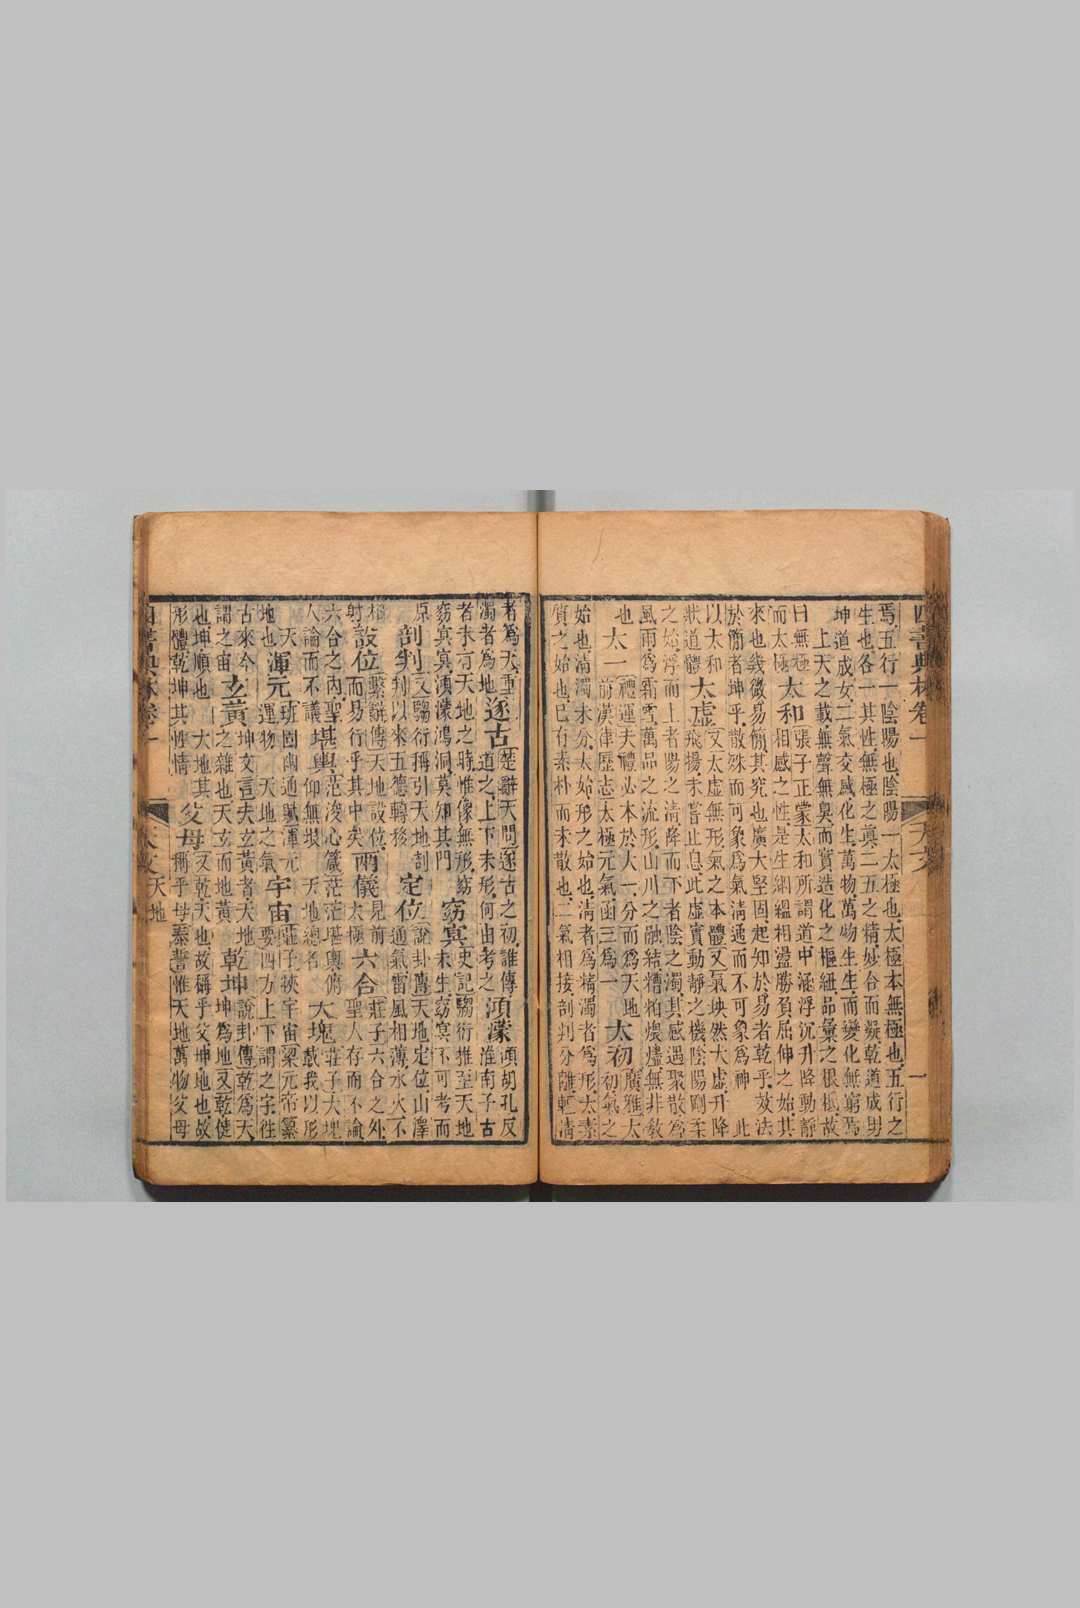 四書典林卷一
天文
一
焉五行一陰陽也陰陽一太極也太極本無極也五行之
生也各一其性無極之眞二五之精妙合而凝乾道成男
坤道成女二氣交感化生萬物萬物生生而變化無窮焉
上天之載無聲無臭而實造化之樞紐品彙之根柢故
曰無極
而太極
太和
張子正蒙太和所謂道中涵浮沉升降動靜
相感之性是生絪縕相盪勝負屈伸之始其
來也幾微易簡其究也廣大堅固起知於易者乾乎效法
於簡者坤乎散殊而可象爲氣清通而不可象爲神
此
以太和
狀道體
太虛
又太虛無形氣之本體又氣坱然大虛升降
飛揚未嘗止息此虛實動靜之機陰陽剛柔
之始浮而上者陽之清降而下者陰之濁其感遇聚散爲
風雨爲霜雪萬品之流形山川之融結糟粕煨燼無非敎
也
太一
禮運夫禮必本於大一分而爲天地
前漢律歷志太極元氣函三爲一
太初
廣雅太
初氣之
始也清濁未分太始形之始也清者爲精濁者爲形太素
質之始也已有素朴而未散也二氣相接剖判分離輕清
者爲天重
濁者爲地
遂古
楚辭天問遂古之初誰傳
道之上下未形何由考之
澒濛
澒胡孔反
淮南子古
者未有天地之時惟像無形窈
窈冥冥澒濛鴻洞莫知其門
窈冥
史記騶衍推至天地
未生窈冥不可考而
原
剖判
又騶衍稱引天地剖
判以來五德轉移
定位
說卦傳天地定位山澤
通氣雷風相薄水火不
相
射
設位
繫辭傳天地設位
而易行乎其中矣
兩儀
見前
太極
六合
莊子六合之外
聖人存而不論
六合之內聖
人論而不議
堪輿
范浚心箴茫茫堪輿俯
仰無垠
天地總名
大塊
莊子大塊
載我以形
天
地也
渾元
班固幽通賦渾元
運物
天地之氣
宇宙
莊子挾宇宙梁元帝纂
要四方上下謂之宇往
古來今
謂之宙
玄黃
坤文言夫玄黃者天地
之雜也天玄而地黃
乾坤
說卦傳乾爲天
坤爲地又乾健
也坤順也
大地其
形體乾坤其性情
父母
又乾天也故稱乎父坤地也故
稱乎母泰誓惟天地萬物父母
四書典林卷一
天文
天地